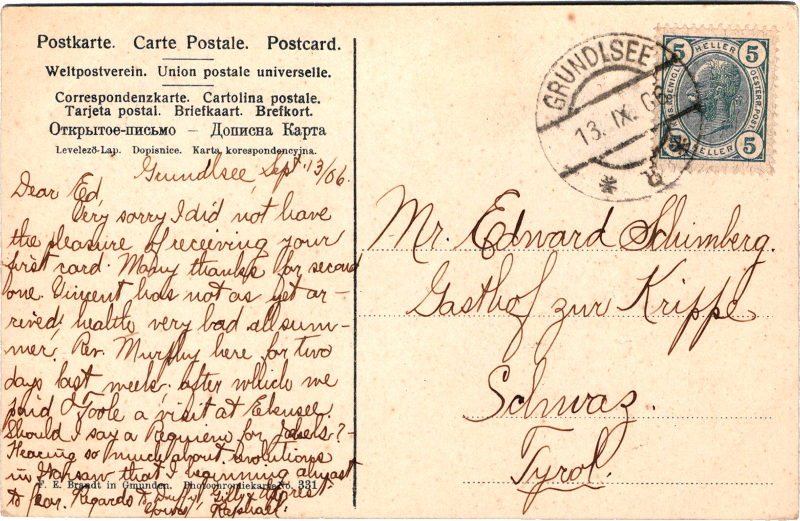 Postkarte. Carte Postale. Postcard.
Weltpostverein. Union postale universelle.
Correspondenzkarte. Cartolina postale.
Tarjeta postal. Briefkaart. Brefkort.
Открытое-письмо — Дописна Карта
Levelező-Lap. Dopisnice. Karta korespondencyjna.
Grundlsee, Sept. 13/06.
Dear Ed,
Very sorry I did not have
the pleasure of receiving your
first card. Many thanks for second
one. Vincent has not as yet ar-
rived; health very bad all sum-
mer. Rev. Murphy here for two
days last week, after which we
paid O'Toole a visit at
Should I say a Requiem for ?-
Hearing so much about
in Warsaw that I beginning almost
to fear. Regards to Duffy, Gilly &
Yours, Raphael.
F. E. Brandt in Gmunden. Photochromiekarte No. 331
GRUNDLSEE
13. IX. 06
5 HELLER 5
KAIS. KOENIGL. OESTERR. POST
5 HELLER 5
Mr. Edward Schimberg.
Gasthof zur Krippe
Schwaz.
Tyrol.